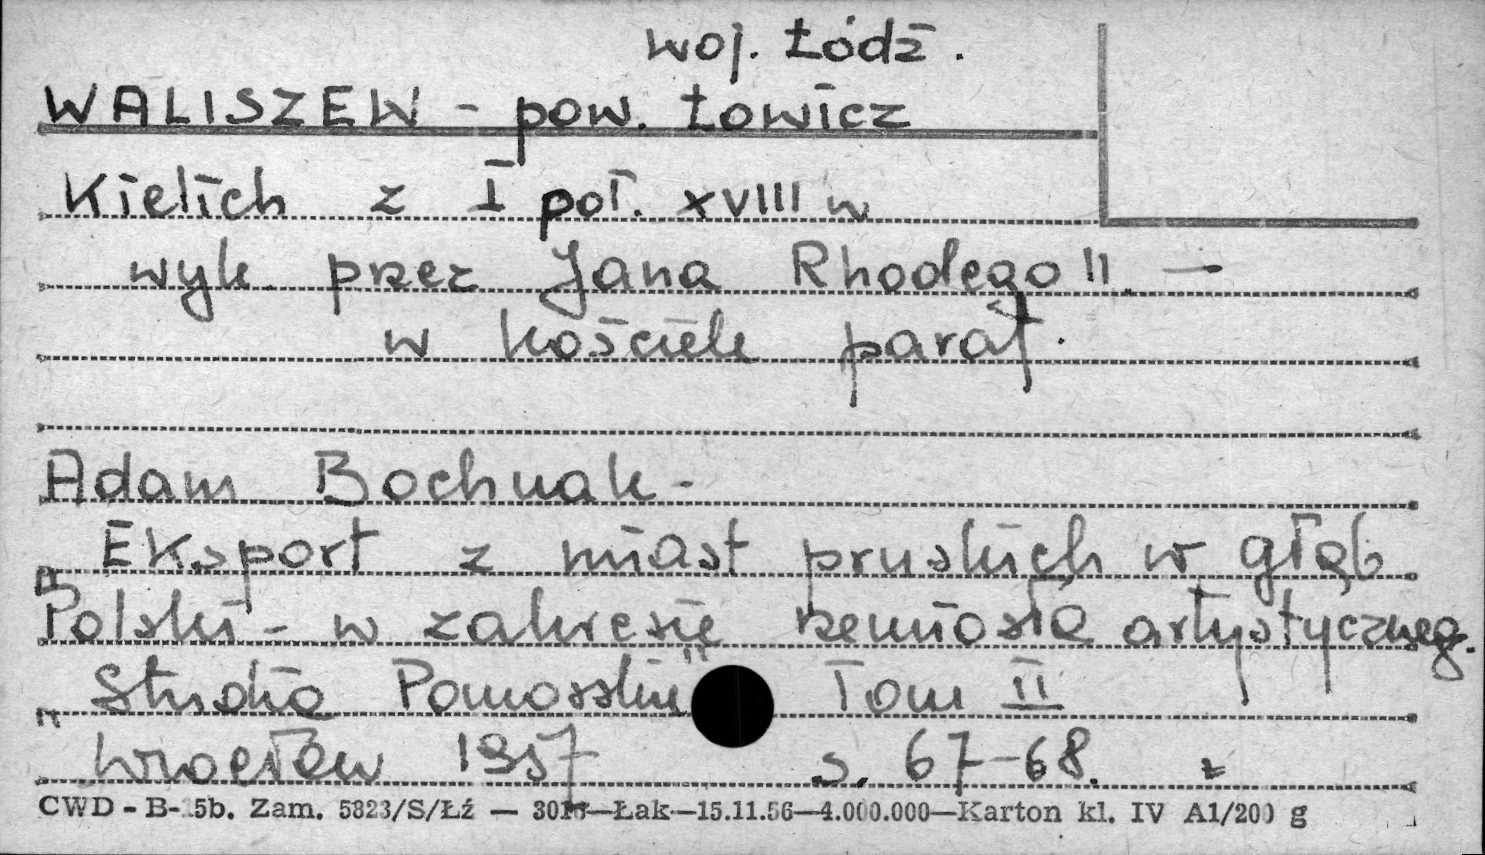 woj. Łódź.
WALISZEW - pow. Łowicz
Kielich z I poł. XVIII w
wyk. przez Jana Rhodego II. —
w kościele paraf.
Adam Bochnak -
Eksport z miast pruskich w głąb
Polski - w zakresie rzemiosła artystyczneg.
"Studia Pomorskie" Tom II
Wrocław 1957 s. 67-68. z
CWD - B- 5b. Zam. 5823/S/Łź — 3018—Łak—15.11.56—4.000.000—Karton kl. IV A1/200 g